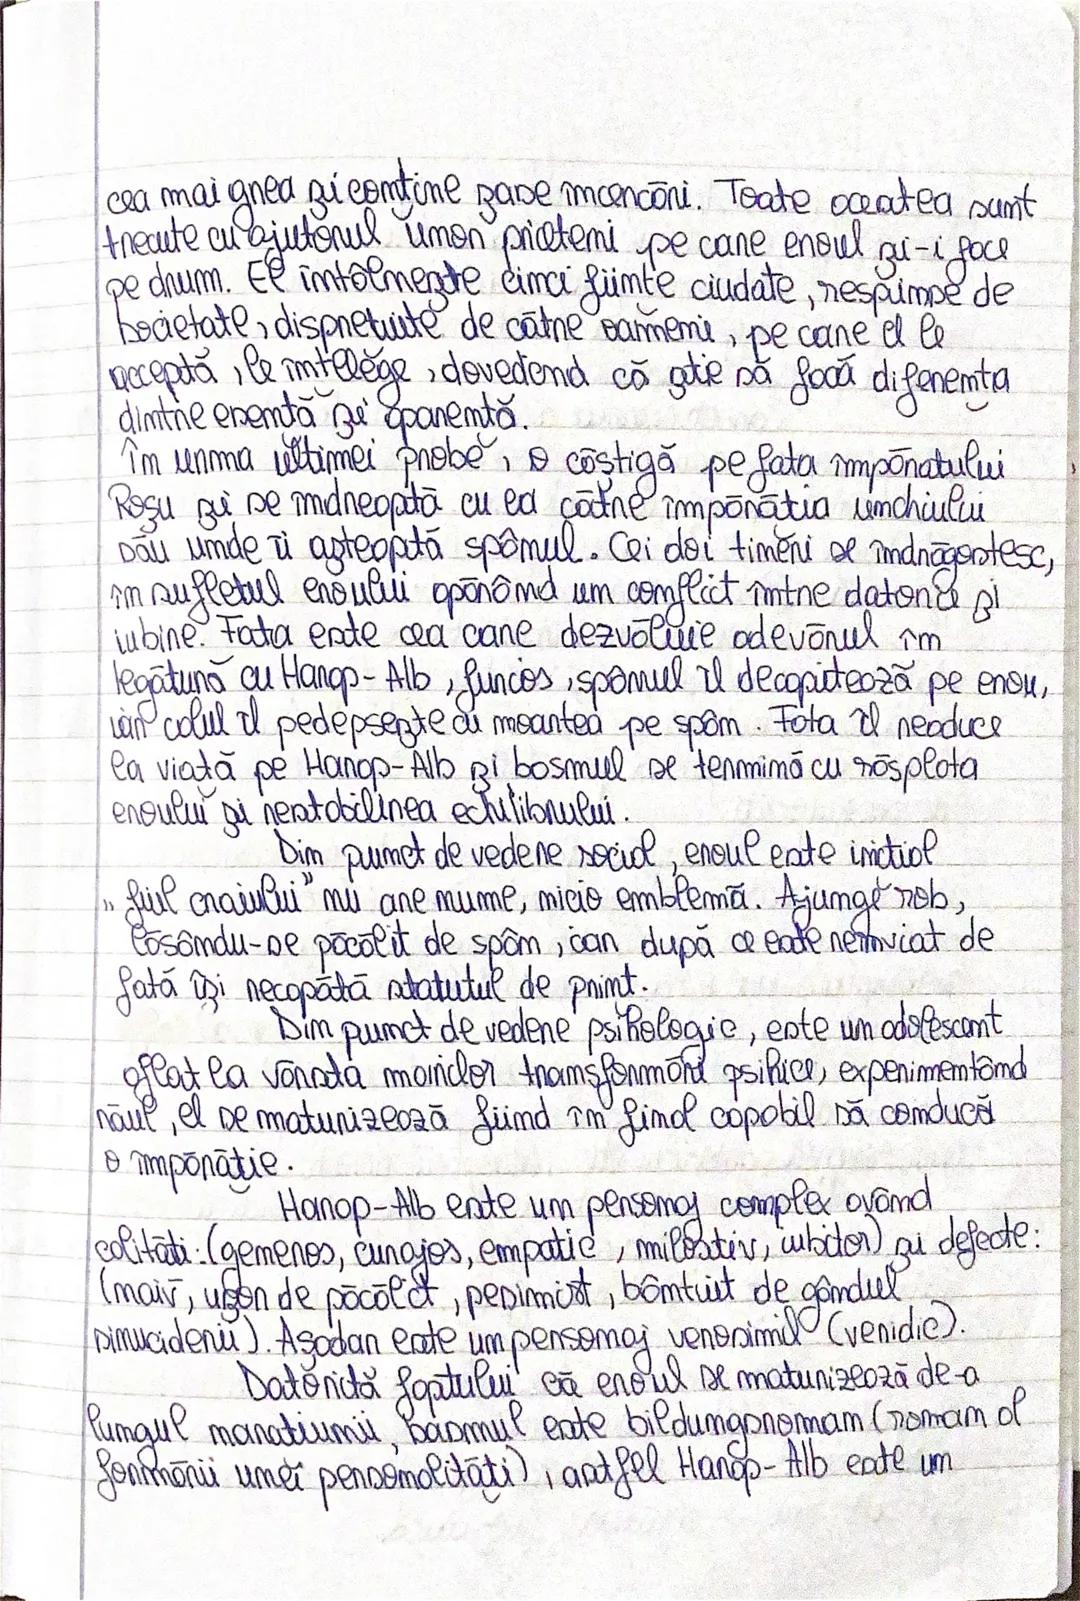 cea mai grea și conține șase încercări. Toate acestea sunt
trecute cu ajutorul unor prieteni pe care eroul și-i face
pe drum. El întâlnește cinci ființe ciudate, respinse de
societate, disprețuite de către oameni, pe care el le
acceptă, le înțelege, dovedend că știe să facă diferența
dintre esență și aparență.
În urma ultimei probe, o câștigă pe fata împăratului
Roșu și se îndreaptă cu ea către împărăția unchiului
său unde îi așteaptă spânul. Cei doi tineri se îndrăgostesc,
în sufletul eroului apărând un conflict între datorie și
iubire. Fata este cea care dezvăluie adevărul în
legătură cu Harap-Alb, furios, spânul îl decapitează pe erou,
iar calul îl pedepsește cu moartea pe spân. Fata îl readuce
la viață pe Harap-Alb și basmul se termină cu răsplata
eroului și restabilirea echilibrului.
Din punct de vedere social, eroul este inițial
„fiul craiului” nu are nume, nicio emblemă. Ajunge rob,
lăsându-se păcălit de spân, iar după ce este reînviat de
fată își recapătă statutul de prinț.
Din punct de vedere psihologic, este un adolescent
aflat la vârsta marilor transformări psihice, experimentând
răul, el se maturizează fiind în final capabil să conducă
o împărăție.
Harap-Alb este un personaj complex având
calități: (generos, curajos, empatic, milostiv, iubitor) și defecte:
(naiv, ușor de păcălit, pesimist, bântuit de gândul
sinuciderii). Așadar este un personaj verosimil (veridic).
Datorită faptului că eroul se maturizează de-a
lungul narațiunii, basmul este bildungsroman (roman al
formării unei personalități), astfel Harap-Alb este un